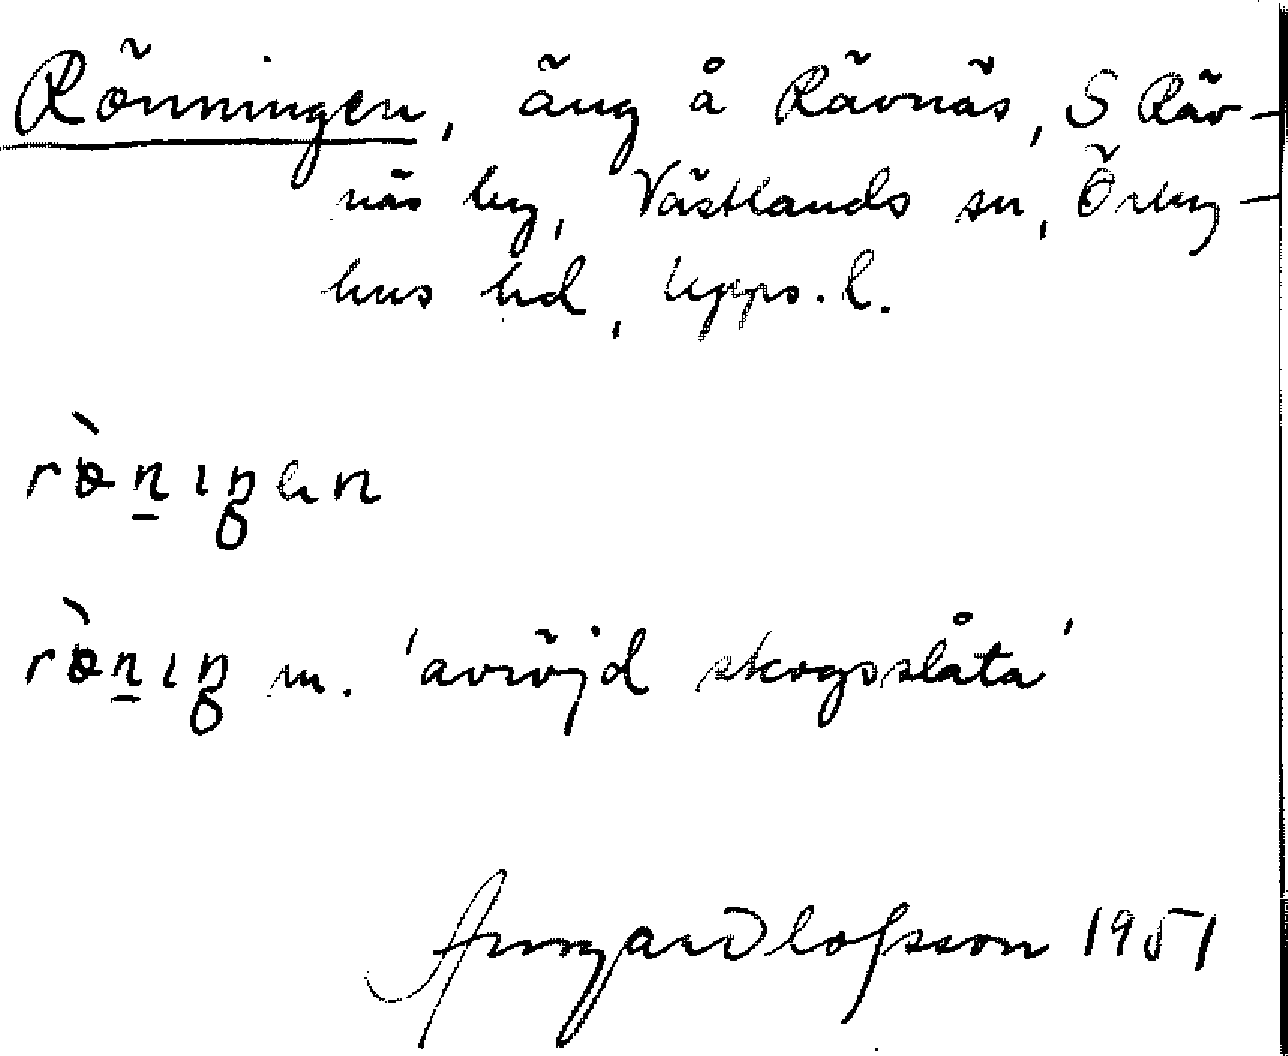 Rönningen, äng å Rävnäs, S Räv-
näs by, Västlands sn, Örby-
hus hd, Upps. l.
rö̀n̲ıŋen
rö̀n̲ıŋ m. 'avröjd skogsslåta'
Olofsson 1951